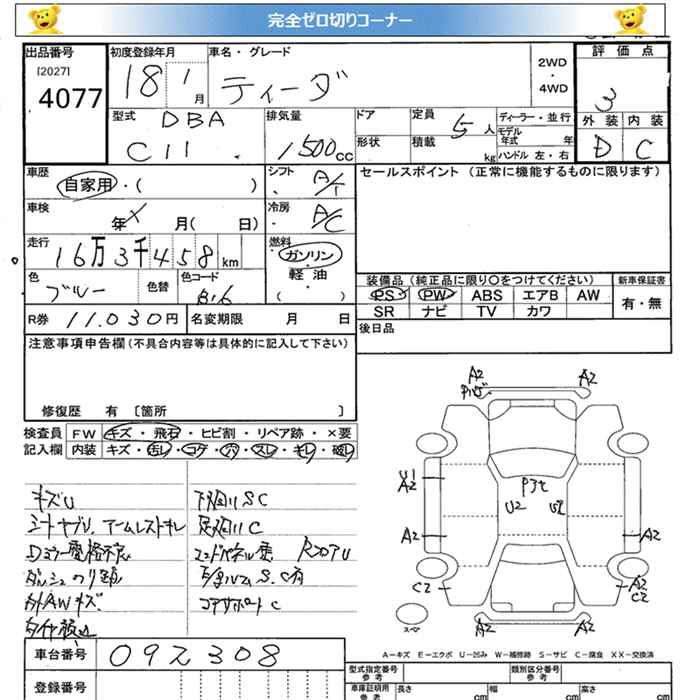 完全ゼロ切りコーナー
出品番号
[2027]
4077
初度登録年月
18 1 月
車名・グレード
ティーダ
2WD
・
4WD
評価点
3
型式
DBA
C11
排気量
1500cc
ドア
形状
定員
5人
積載
kg
ディーラー・並行
モデル年式 年
ハンドル 左・右
外装 内装
D C
車歴
自家用・( )
シフト
A/T
セールスポイント (正常に機能するものに限ります)
車検
年 月( 日)
冷房
A/C
走行
16万3千458km
燃料
ガソリン
軽油
( )
色
ブルー
色替
色コード
B16
装備品 (純正品に限り〇をつけてください)
新車保証書
PS PW ABS エアB AW
有・無
SR ナビ TV カワ
R券 11.030円
名変期限 月 日
後日品
注意事項申告欄(不具合内容等は具体的に記入して下さい)
修復歴 有 〔箇所 〕
検査員 FW キズ・飛石・ヒビ割・リペア跡・×要
記入欄 内装 キズ・汚レ・コゲ・穴・スレ・キレ・破レ
キズU
下回リSC
シートヤブU、アームレストキレ
足回リC
Dミラー電格不良
エンドパネル歪
RフロアU
ダッシュのり跡
S.C有
外AWキズ
コアサポートC
A2
A2
U1
A2
A2
A2
C2
A2
C2
A2
A2
U2
スペア
A－キズ E－エクボ U－凹み W－補修跡 S－サビ C－腐食 XX－交換済
車台番号
092308
登録番号
型式指定番号
類別区分番号
車庫証明用参考
長さ cm
幅 cm
高さ cm